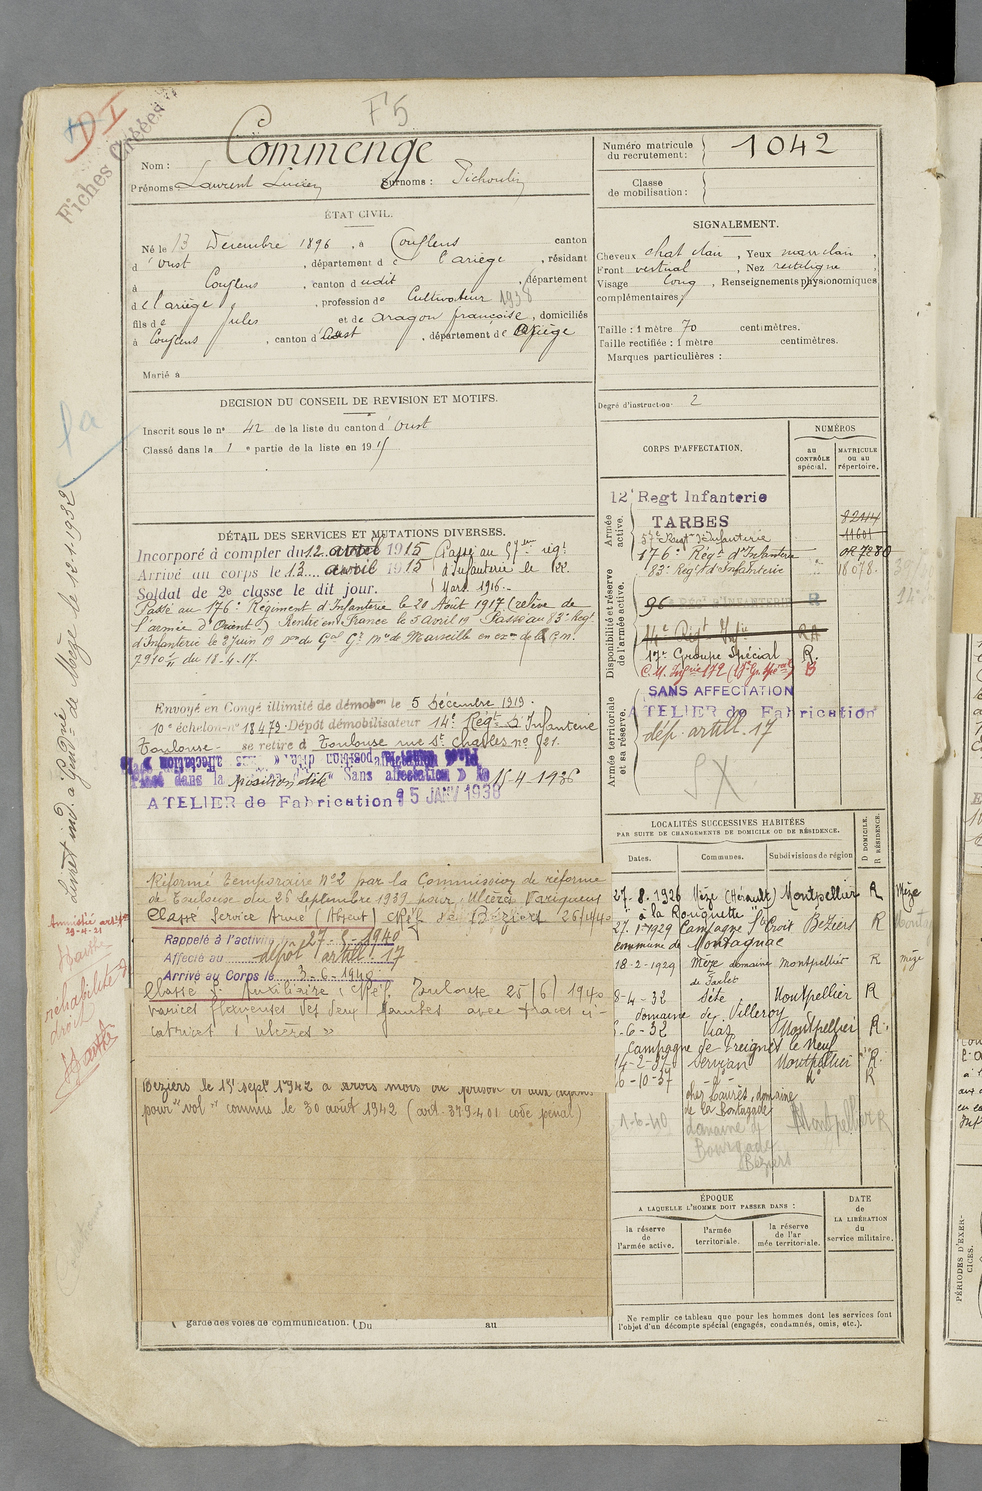 F5
DI
Fiches Créées
Nom : Commenge
Prénoms Laurent Lucien Surnoms : Pichoulin
Numéro matricule du recrutement : 1042
Classe de mobilisation :
ÉTAT CIVIL.
Né le 13 Décembre 1896, à Couflens canton
d'oust, département de l'ariège, résidant
à Couflens, canton dudit, département
de l'ariège, profession de Cultivateur 1938
fils de jules et de aragon françoise, domiciliés
à Couflens, canton d'oust, département de ariège
Marié à
SIGNALEMENT.
Cheveux chat clair, Yeux marr clair,
Front vertical, Nez rectiligne,
Visage long, Renseignements physionomiques
complémentaires
Taille : 1 mètre 70 centimètres.
Taille rectifiée : 1 mètre centimètres.
Marques particulières :
Degré d'instruction 2
DECISION DU CONSEIL DE REVISION ET MOTIFS.
Inscrit sous le n° 42 de la liste du canton d'oust
Classé dans la 1e partie de la liste en 1915
CORPS D'AFFECTATION.
NUMÉROS
au CONTRÔLE spécial.
MATRICULE ou au répertoire.
Armée active.
12e Regt Infanterie
TARBES
8244
57e Regt d'Infanterie 11601
176e Régt d'Infanterie OR 7280
83e Régt d'Infanterie 18078
Disponibilité et réserve de l'armée active.
96 R
14e Régt Infie RA
17e Groupe Spécial R.
SANS AFFECTATION
ATELIER de Fabrication
Armée territoriale et sa réserve.
dép. artill. 17
SX
DÉTAIL DES SERVICES ET MUTATIONS DIVERSES.
Incorporé à compter du 12 avril 1915 Passé au 57eme régt
Arrivé au corps le 13 avril 1915 d'Infanterie le
Soldat de 2e classe le dit jour. Mars 1916.
Passé au 176e Régiment d'Infanterie le 20 Août 1917 (relève de
l'armée d'Orient) Rentré en France le 5 avril 19 Passé au 83e Régt
d'Infanterie le 3 Juin 19 de Marseille en
7910 du 18-4-17.
Envoyé en Congé illimité de démobon le 5 Décembre 1919.
10e échelon n° 18479 Dépôt démobilisateur 14e Régt d'Infanterie
Toulouse se retire à Toulouse rue St Charles no 21.
Placé dans la position dite "Sans affectation" le 15-4-1936
ATELIER de Fabrication 15 JANV 1938
Réformé temporaire N°2 par la Commission de réforme
de Toulouse du 26 Septembre 1939 pour ulcères variqueux
Classé Service Armé (Absent) de Béziers 26/4/40
Rappelé à l'activité 27-5-1940
Affecté au dépôt artill. 17
Arrivé au Corps le 3-6-1940
Classé S. Auxiliaire Toulouse 25/6/1940
varices des deux jambes avec traces ci-
catrices d'ulcères"
Béziers le 1er Sept 1942 à trois mois de prison et aux dépens
pour "vol" commis le 30 août 1942 (art. 379-401 code pénal)
garde des voies de communication. (Du au
LOCALITÉS SUCCESSIVES HABITÉES
PAR SUITE DE CHANGEMENTS DE DOMICILE OU DE RÉSIDENCE.
Dates. Communes. Subdivisions de région D DOMICILE. R RÉSIDENCE.
27-8-1926 Mèze (Hérault) Montpellier R Mèze
à la Rouquette
27-1-1929 Campagne Ste Croix Béziers R
commune de Montagnac
18-2-1929 Mèze domaine Montpellier R Mèze
8-4-32 Sète Montpellier R
domaine de Villeroy
6-6-32 Vias Montpellier R
Campagne de Preignes le Neuf
14-2-37 Servian Montpellier R.
6-10-37 -d°- d° R
chez Laurès, domaine
1-6-40 domaine de Montpellier R
Bourgade
Béziers
ÉPOQUE
A LAQUELLE L'HOMME DOIT PASSER DANS :
la réserve de l'armée active.
l'armée territoriale.
la réserve de l'armée territoriale.
DATE de LA LIBÉRATION du service militaire.
Ne remplir ce tableau que pour les hommes dont les services font
l'objet d'un décompte spécial (engagés, condamnés, omis, etc.).
Livret ind. à Gendrie de Mèze le 12.1.1932
Amnistié
29-4-21
réhabilité de
droit
PÉRIODES D'EXERCICES.